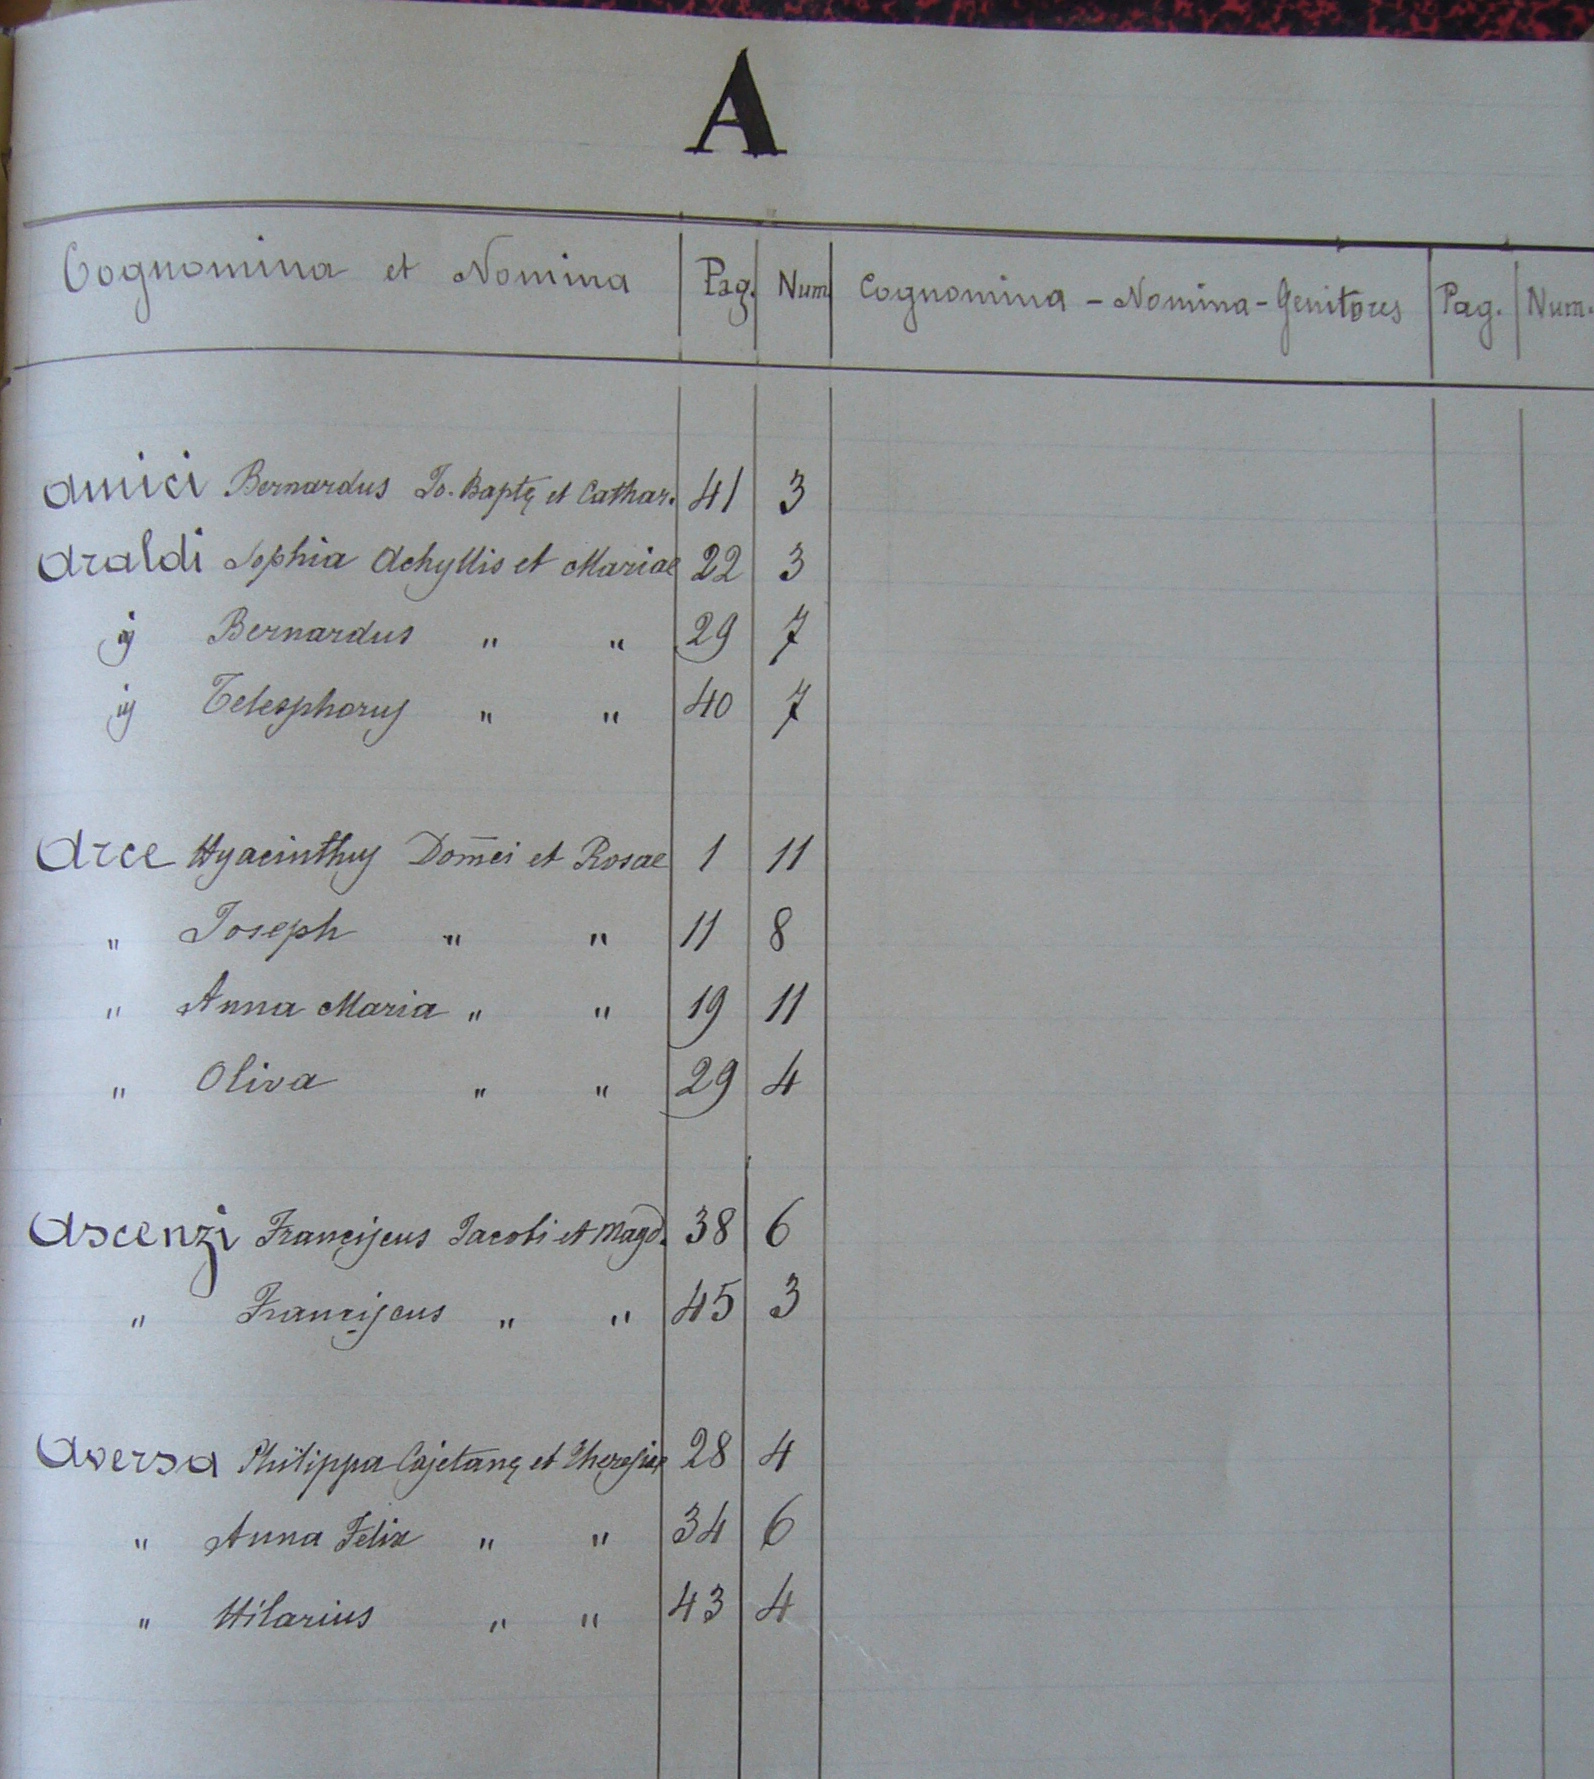 A
Cognomina et Nomina Pag. Num. Cognomina - Nomina - Genitores Pag. Num.
Amici Bernardus Io. Baptę et Cathar. 41 3
Araldi Sophia Achyllis et Mariae 22 3
ij Bernardus " " 29 7
ij Telesphorus " " 40 7
Arce Hyacinthus Dom̄ci et Rosae 1 11
" Joseph " " 11 8
" Anna Maria " " 19 11
" Oliva " " 29 4
Ascenzi Franciscus Jacobi et Magd. 38 6
" Franciscus " " 45 3
Aversa Philippa Cajetanę et Theresiae 28 4
" Anna Felix " " 34 6
" Hilarius " " 43 4